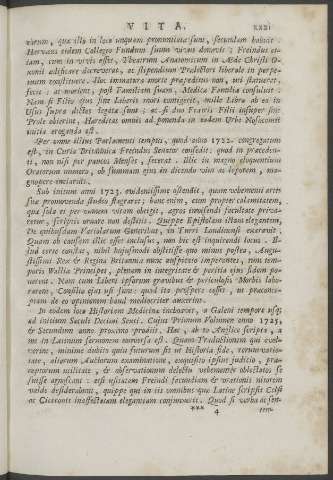 VITA. xxxi
rarum, quæ illo in loco unquam pronuntiatæ sunt, secundam habuit.
Harveius eidem Collegio Fundum suum vivus donavit; Freindus etiam,
cum in vivis esset, Theatrum Anatomicum in Æde Christi Oxonii
ædificare decreverat, ac stipendium Prælectori liberale in perpetuum
constituere. Hoc immatura morte præpeditus non, uti statueret,
fecit: at moriens, post Familiam suam, Medicæ Familiæ consuluit.
Nam si Filio ejus sine Liberis mori contigerit, mille Libræ ab eo in
Usus supra dictos legatæ sunt; ac si duo Fratris Filii insuper sine
Prole obierint, Hæreditas omnis ad ponenda in eodem Urbe Nosocomii
initia eroganda est.
Per omne illius Parlamenti tempus, quod anno 1722. congregatum
est, in Curia Britannica Freindus Senator consedit: quod in præcedenti,
non nisi per paucos Menses, fecerat. Illic in magno eloquentium
Oratorum numero, ob summam ejus in dicendo vim ac leporem, magnopere
emicuit.
Sub initium anni 1723. evidentissime ostendit, quam vehementi artis
suæ promovendæ studio flagraret; hunc enim, cum propter calamitatem,
quæ sola ei per omnem vitam obtigit, ægros invisendi facultate privaretur,
scriptis ornare non destitit. Quippe Epistolam istam elegantem,
De quibusdam Variolarum Generibus, in Turri Londinensi exaravit.
Quam ob causam illic esset inclusus, non hic est inquirendi locus. Illud
certe constat, nihil hujusmodi obstitisse quo minus postea, Augustissimi
Rex & Regina Britanniæ nunc auspicato imperantes, tunc temporis
Walliæ Principes, plenam in integritate & peritia ejus fidem ponerent.
Nam cum Liberi ipsorum gravibus & periculosis Morbis laborarent,
Consilio ejus usi sunt: quod ita prospere cessit, ut præconceptam
de eo opinionem haud mediocriter auxerint.
In eodem loco Historiam Medicinæ inchoavit, a Galeni tempore usque
ad initium Sæculi Decimi Sexti. Cujus Primum Volumen anno 1725,
& Secundum anno proximo prodiit. Hæc, ab eo Anglice scripta,
in Latinum sermonem conversa est. Quam Traductionem qui evolverint,
minime dubito quin futurum sit ut Historiæ fide, rerum varietate,
aliarum Authorum examinatione, exquisito ipsius judicio, præceptorum
utilitate, & observationum delectu vehementer oblectatos se
fuisse agnoscant: etsi usitatum Freindi fecundiam & orationis nitorem
valde desiderabunt, quippe qui in iis omnibus quæ Latine scripsit Celsi
ac Ciceronis inaffectatam elegantiam conjunxerit. Quod si verba ac sen-
*** 4 tem-